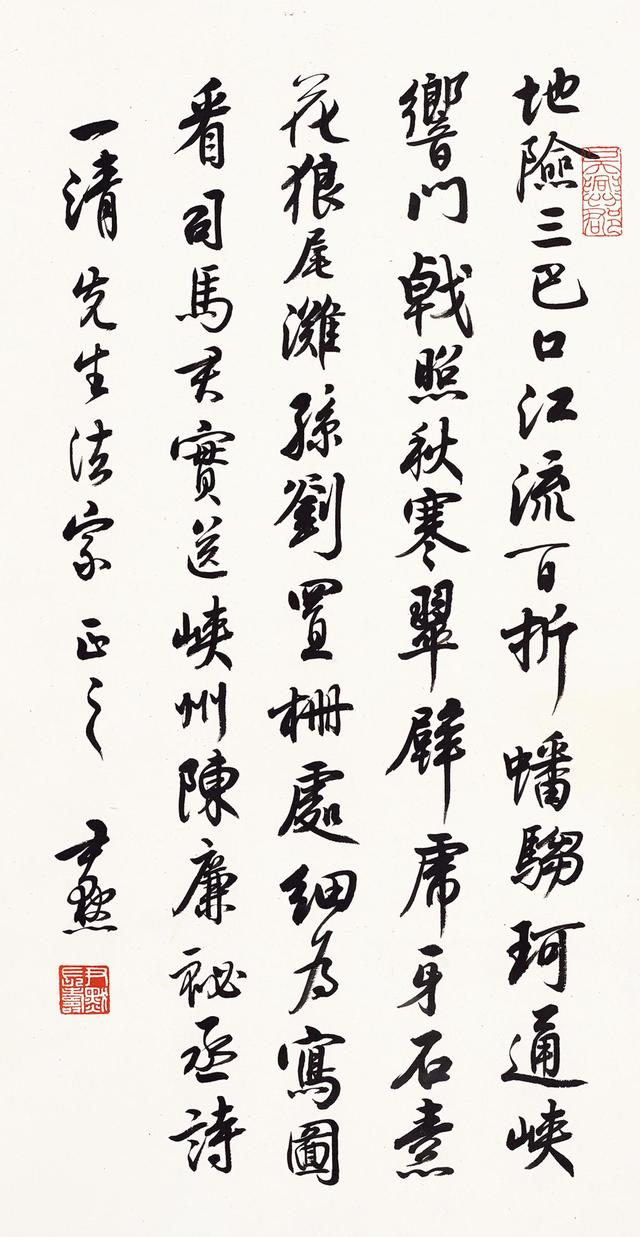 地險三巴口江流百折蟠騶珂通峽
響門戟照秋寒翠壁虎牙石素
花狼尾灘孫劉置柵處細為寫圖
看司馬君實送峽州陳廉祕丞詩
一清先生法家正之 尹默
吳興郡
尹默長壽